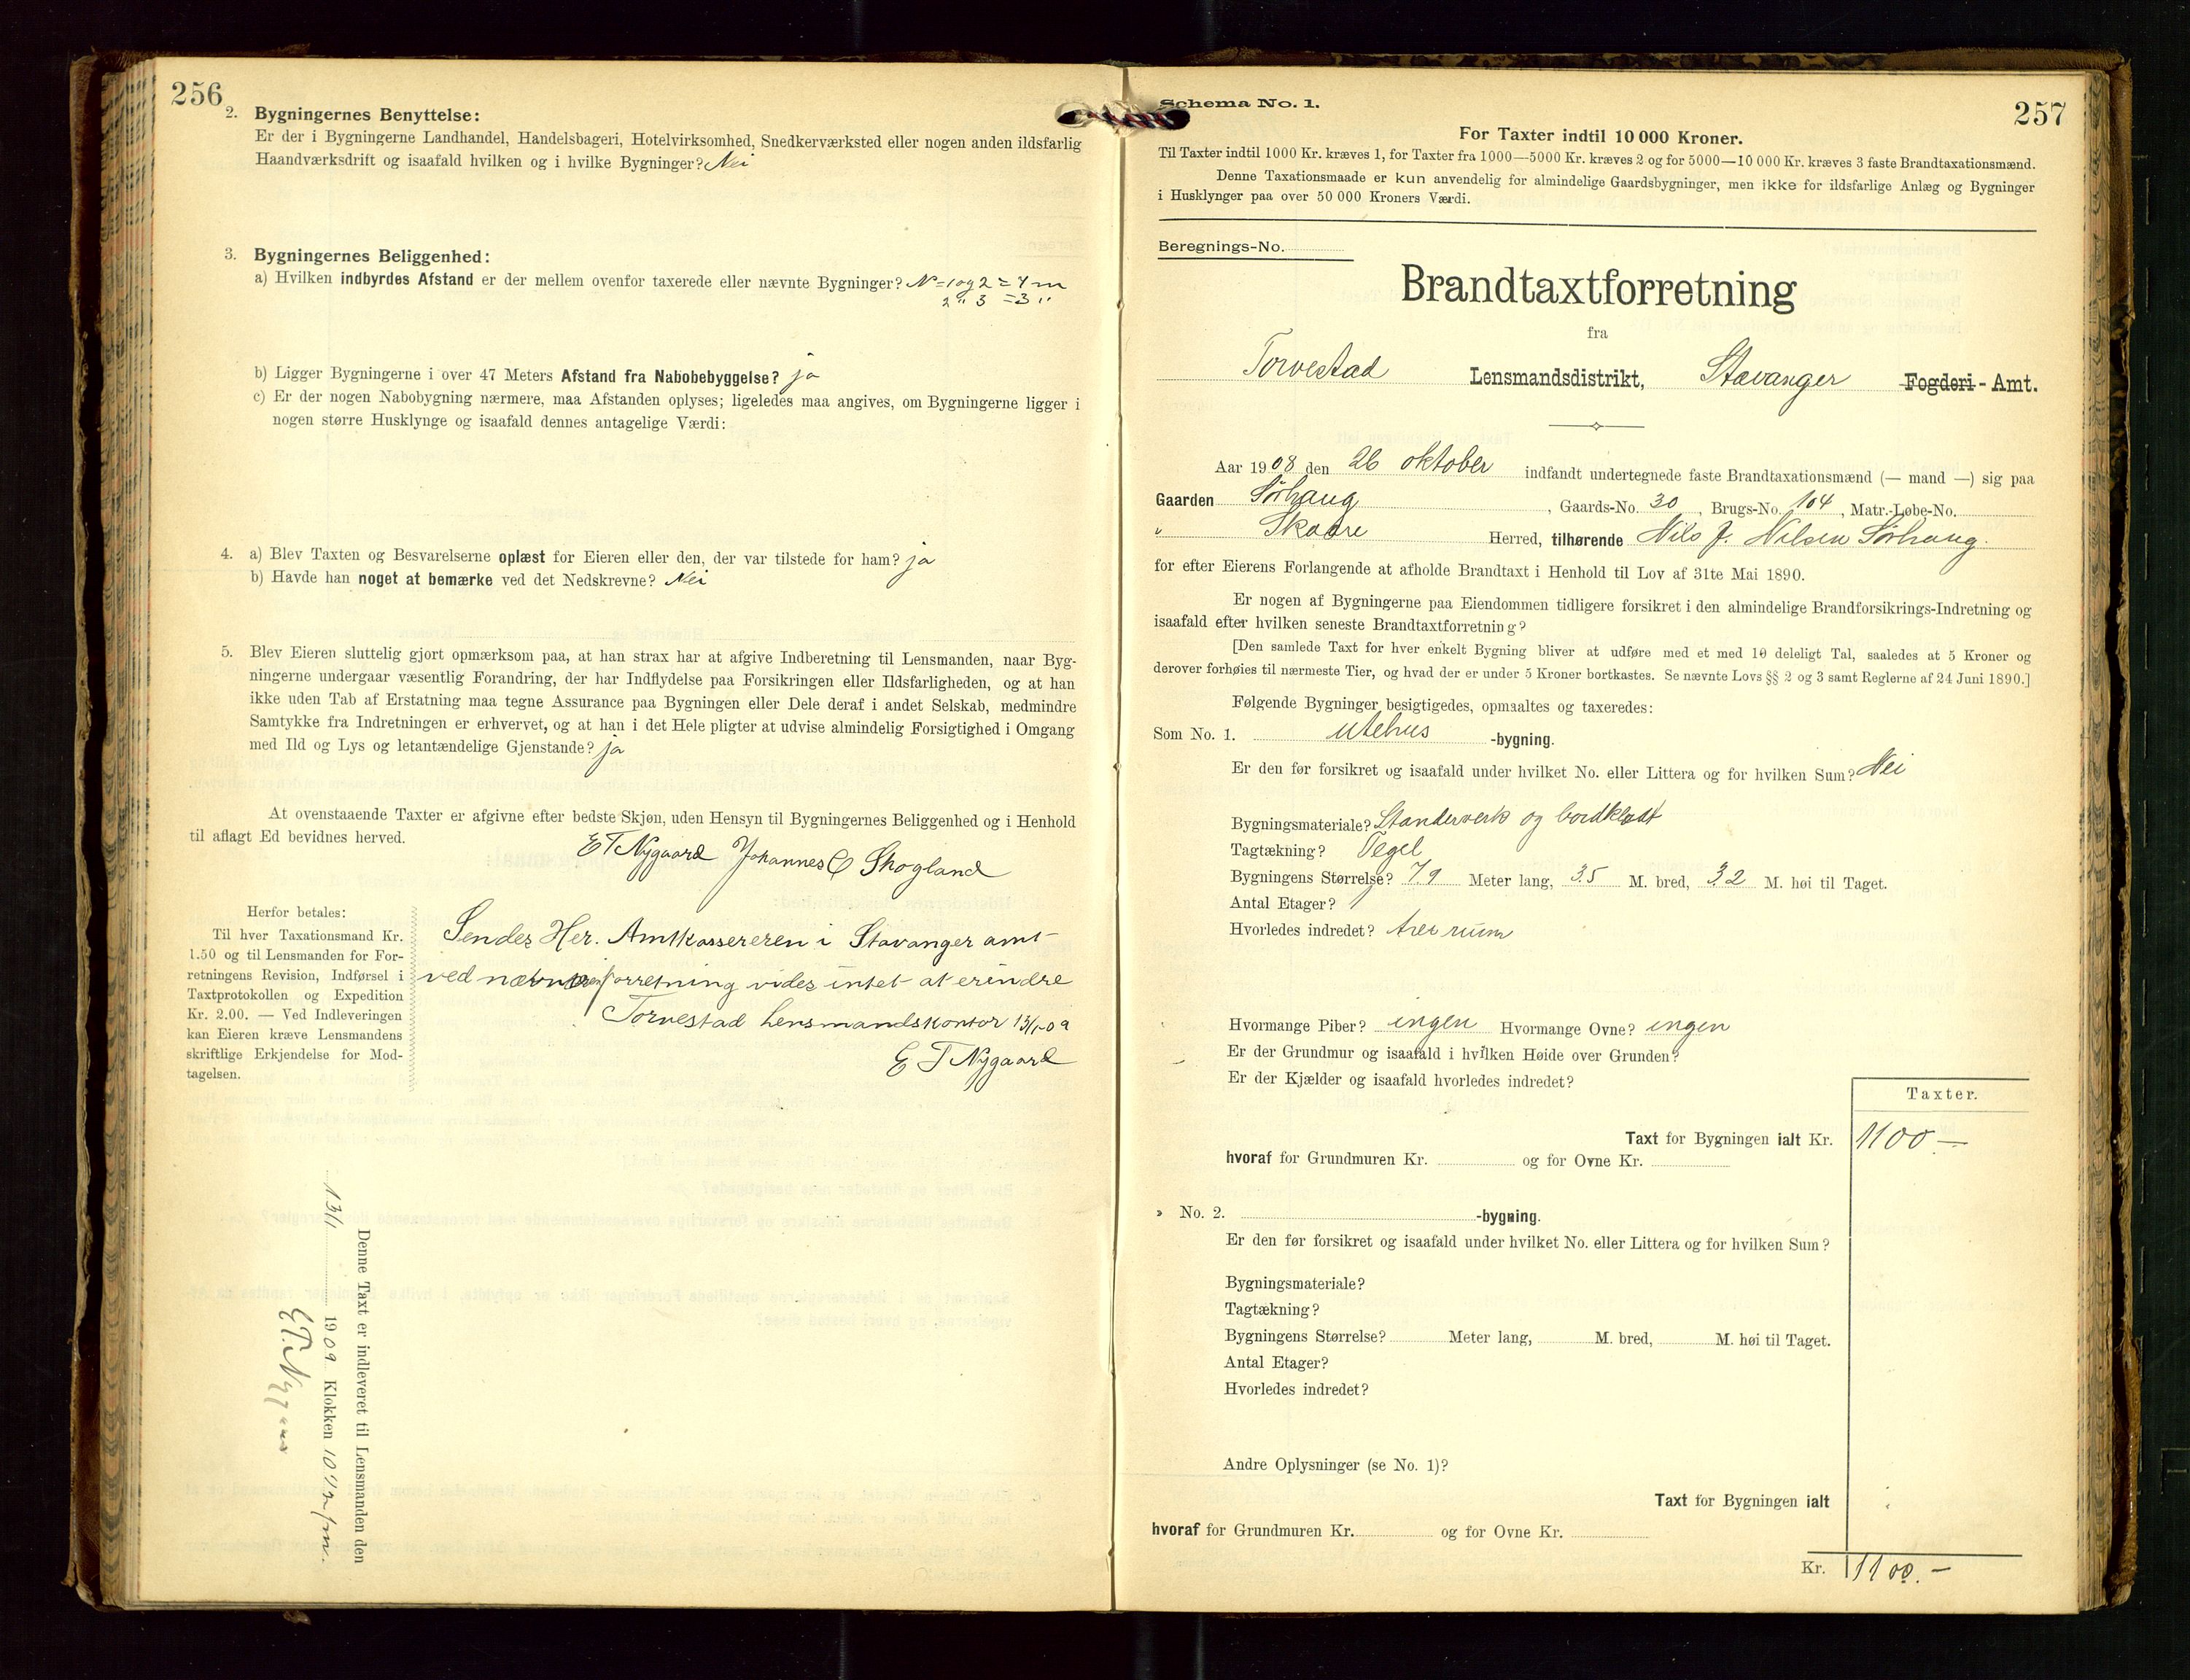 256
2. Bygningernes Benyttelse:
Er der i Bygningerne Landhandel, Handelsbageri, Hotelvirksomhed, Snedkerværksted eller nogen anden ildsfarlig
Haandværksdrift og isaafald hvilken og i hvilke Bygninger? Nei
3. Bygningernes Beliggenhed:
a) Hvilken indbyrdes Afstand er der mellem ovenfor taxerede eller nævnte Bygninger? No 1 og 2 = 7 m
2 " 3 = 3 "
b) Ligger Bygningerne i over 47 Meters Afstand fra Nabobebyggelse? ja
c) Er der nogen Nabobygning nærmere, maa Afstanden oplyses; ligeledes maa angives, om Bygningerne ligger i
nogen større Husklynge og isaafald dennes antagelige Værdi:
4. a) Blev Taxten og Besvarelserne oplæst for Eieren eller den, der var tilstede for ham? ja
b) Havde han noget at bemærke ved det Nedskrevne? Nei
5. Blev Eieren sluttelig gjort opmærksom paa, at han strax har at afgive Indberetning til Lensmanden, naar Byg-
ningerne undergaar væsentlig Forandring, der har Indflydelse paa Forsikringen eller Ildsfarligheden, og at han
ikke uden Tab af Erstatning maa tegne Assurance paa Bygningen eller Dele deraf i andet Selskab, medmindre
Samtykke fra Indretningen er erhvervet, og at han i det Hele pligter at udvise almindelig Forsigtighed i Omgang
med Ild og Lys og letantændelige Gjenstande? ja
At ovenstaaende Taxter er afgivne efter bedste Skjøn, uden Hensyn til Bygningernes Beliggenhed og i Henhold
til aflagt Ed bevidnes herved.
E T Nygaard Johannes C Skogland
Herfor betales:
Til hver Taxationsmand Kr.
1.50 og til Lensmanden for For-
retningens Revision, Indførsel i
Taxtprotokollen og Expedition
Kr. 2.00. — Ved Indleveringen
kan Eieren kræve Lensmandens
skriftlige Erkjendelse for Mod-
tagelsen.
Sendes Her. Amtkassereren i Stavanger amt
ved forretning vides intet at erindre
Torvestad Lensmandskontor 13/1-09
E T Nygaard
Denne Taxt er indleveret til Lensmanden den
13/1 1909 Klokken 10 1/2 fm.
E T. Nygaard
Schema No. 1.
257
For Taxter indtil 10 000 Kroner.
Til Taxter indtil 1000 Kr. kræves 1, for Taxter fra 1000—5000 Kr. kræves 2 og for 5000—10 000 Kr. kræves 3 faste Brandtaxationsmænd.
Denne Taxationsmaade er kun anvendelig for almindelige Gaardsbygninger, men ikke for ildsfarlige Anlæg og Bygninger
i Husklynger paa over 50 000 Kroners Værdi.
Beregnings-No.
Brandtaxtforretning
fra
Torvestad Lensmandsdistrikt, Stavanger Fogderi-Amt.
Aar 1908 den 26 oktober indfandt undertegnede faste Brandtaxationsmænd (— mand —) sig paa
Gaarden Sørhaug, Gaards-No. 30, Brugs-No. 104, Matr.-Løbe-No.
" Skaare Herred, tilhørende Nils J. Nilsen Sørhaug.
for efter Eierens Forlangende at afholde Brandtaxt i Henhold til Lov af 31te Mai 1890.
Er nogen af Bygningerne paa Eiendommen tidligere forsikret i den almindelige Brandforsikrings-Indretning og
isaafald efter hvilken seneste Brandtaxtforretning?
[Den samlede Taxt for hver enkelt Bygning bliver at udføre med et med 10 deleligt Tal, saaledes at 5 Kroner og
derover forhøies til nærmeste Tier, og hvad der er under 5 Kroner bortkastes. Se nævnte Lovs §§ 2 og 3 samt Reglerne af 24 Juni 1890.]
Følgende Bygninger besigtigedes, opmaaltes og taxeredes:
Som No. 1. Utehus -bygning.
Er den før forsikret og isaafald under hvilket No. eller Littera og for hvilken Sum? Nei
Bygningsmateriale? Standerverk og bordklædt
Tagtækning? Tegel
Bygningens Størrelse? 7.9 Meter lang, 3.5 M. bred, 3.2 M. høi til Taget.
Antal Etager? 1
Hvorledes indredet? rum
Hvormange Piber? ingen Hvormange Ovne? ingen
Er der Grundmur og isaafald i hvilken Høide over Grunden?
Er der Kjælder og isaafald hvorledes indredet?
Taxter.
Taxt for Bygningen ialt Kr. 1100.—
hvoraf for Grundmuren Kr. og for Ovne Kr.
» No. 2. -bygning.
Er den før forsikret og isaafald under hvilket No. eller Littera og for hvilken Sum?
Bygningsmateriale?
Tagtækning?
Bygningens Størrelse? Meter lang, M. bred, M. høi til Taget.
Antal Etager?
Hvorledes indredet?
Andre Oplysninger (se No. 1)?
Taxt for Bygningen ialt
hvoraf for Grundmuren Kr. og for Ovne Kr.
Kr. 1100.—